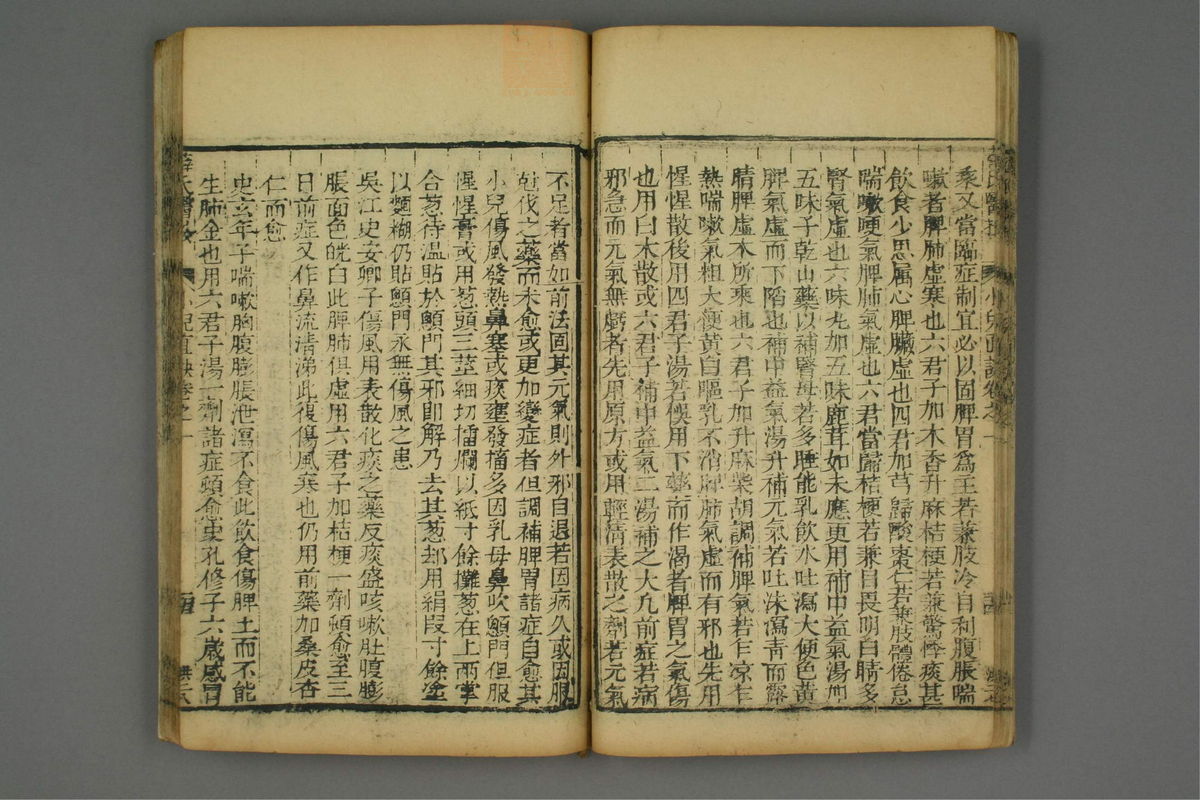 乘又當臨症制宜必以固脾胃爲主若兼肢冷自利腹脹喘
嗽者脾肺虛寒也六君子加木香升麻桔梗若兼驚悸痰甚
飲食少思屬心脾臟虛也四君加芎歸酸棗仁若兼肢體倦怠
喘嗽哽氣脾肺氣虛也六君當歸桔梗若兼目畏明白睛多
腎氣虛也六味丸加五味鹿茸如未應更用補中益氣湯加
五味子乾山藥以補腎母若多睡能乳飲水吐瀉大便色黃
脾氣虛而下陷也補中益氣湯升補元氣若吐沫瀉青而露
睛脾虛木所乘也六君子加升麻柴胡調補脾氣若乍凉乍
熱喘嗽氣粗大便黃白嘔乳不消脾肺氣虛而有邪也先用
惺惺散後用四君子湯若悞用下藥而作渴者脾胃之氣傷
也用白木散或六君子補中益氣二湯補之大凡前症若病
邪急而元氣無虧者先用原方或用輕清表散之劑若元氣
不足者當如前法固其元氣則外邪自退若因病久或因服
尅伐之藥而未愈或更加變症者但調補脾胃諸症自愈其
小兒傷風發熱鼻塞或痰壅發搐多因乳母鼻吹顖門但服
惺惺膏或用葱頭三莖細切擂爛以紙寸餘攤葱在上兩掌
合葱待温貼於顖門其邪即解乃去其葱却用絹段寸餘塗
以麵糊仍貼顖門永無傷風之患
吳江史安卿子傷風用表散化痰之藥反痰盛咳嗽肚腹膨
脹面色㿠白此脾肺俱虛用六君子加桔梗一劑頓愈至三
日前症又作鼻流清涕此復傷風寒也仍用前藥加桑皮杏
仁而愈
史玄年子喘嗽胸腹膨脹泄瀉不食此飲食傷脾土而不能
生肺金也用六君子湯一劑諸症頓愈史孔修子六歲感冒
薛氏醫
小兒直訣卷之一